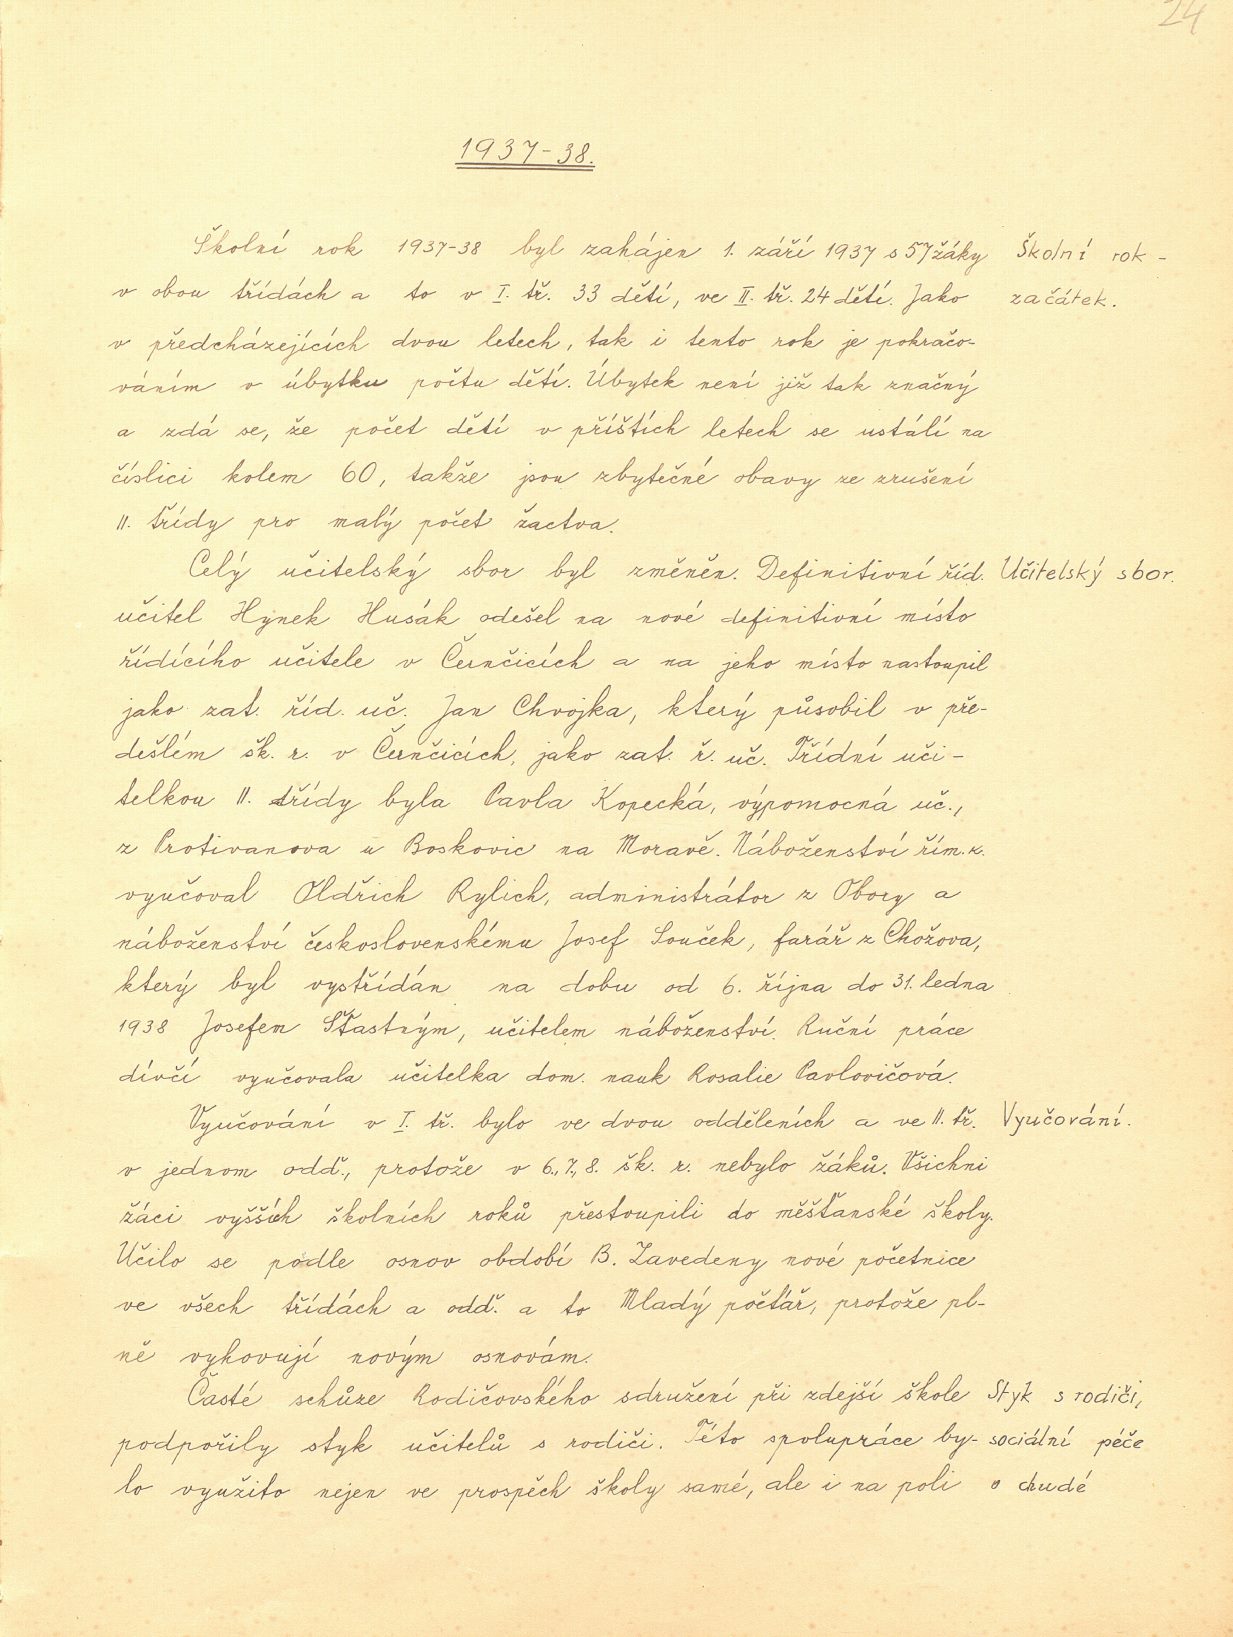 24
1937-38.
Školní rok 1937-38 byl zahájen 1. září 1937 s 57 žáky
Školní rok -
v obou třídách a to v I. tř. 33 dětí, ve II. tř. 24 dětí. Jako
začátek.
v předcházejících dvou letech, tak i tento rok je pokračo-
váním v úbytku počtu dětí. Úbytek není již tak značný
a zdá se, že počet dětí v příštích letech se ustálí na
číslici kolem 60, takže jsou zbytečné obavy ze zrušení
II. třídy pro malý počet žactva.
Celý učitelský sbor byl změněn. Definitivní říd.
Učitelský sbor.
učitel Hynek Husák odešel na nové definitivní místo
řídícího učitele v Černčicích a na jeho místo nastoupil
jako zat. říd. uč. Jan Chvojka, který působil v pře-
dešlém šk. r. v Černčicích, jako zat. ř. uč. Třídní uči-
telkou II. třídy byla Pavla Kopecká, výpomocná uč.,
z Protivanova u Boskovic na Moravě. Náboženství řím. k.
vyučoval Oldřich Rylich, administrátor z Obory a
náboženství československému Josef Souček, farář z Chožova,
který byl vystřídán na dobu od 6. října do 31. ledna
1938 Josefem Šťastným, učitelem náboženství. Ruční práce
dívčí vyučovala učitelka dom. nauk Rosalie Pavlovičová.
Vyučování v I. tř. bylo ve dvou odděleních a ve II. tř.
Vyučování.
v jednom odd., protože v 6., 7., 8. šk. r. nebylo žáků. Všichni
žáci vyšších školních roků přestoupili do měšťanské školy.
Učilo se podle osnov období B. Zavedeny nové početnice
ve všech třídách a odd. a to Mladý počtář, protože pl-
ně vyhovují novým osnovám.
Časté schůze Rodičovského sdružení při zdejší škole
Styk s rodiči,
podpořily styk učitelů s rodiči. Této spolupráce by-
sociální péče
lo využito nejen ve prospěch školy samé, ale i na poli
o chudé